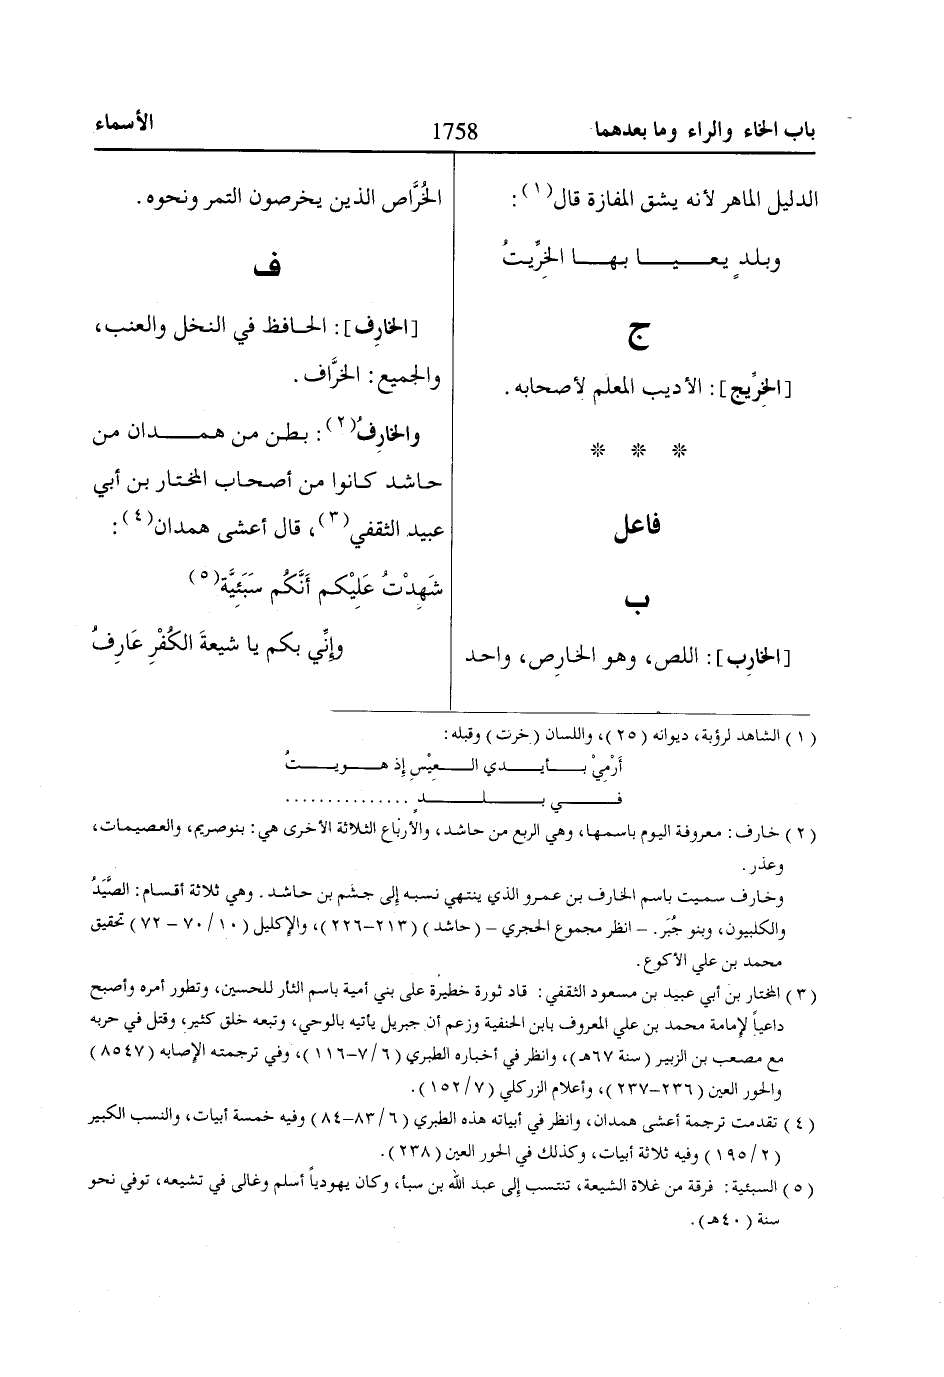 باب الخاء والراء وما بعدهما
1758
الأسماء
الدليل الماهر لأنه يشق المفازة قال(١):
وبلدٍ يعيـــا بهـا الخِرِّيتُ
ج
[الخِرِّيج]: الأديب المعلم لأصحابه.
* * *
فاعل
ب
[الخارِب]: اللص، وهو الخارِص، واحد
الخُرَّاص الذين يخرصون التمر ونحوه.
ف
[الخارِف]: الحافظ في النخل والعنب،
والجميع: الخرَّاف.
والخارِفُ(٢): بطن من همدان من
حاشد كانوا من أصحاب المختار بن أبي
عبيد الثقفي(٣)، قال أعشى همدان(٤):
شَهِدْتُ عَلَيْكم أَنَّكُم سَبَئِيَّة(٥)
وإنِّي بكم يا شيعةَ الكُفْرِ عَارِفُ
(١) الشاهد لرؤبة، ديوانه (٢٥)، واللسان (خرت) وقبله:
أَرْمِيْ بـأيـدي العِيْسِ إذ هـويـتُ
فـي بـلـدٍ ...............
(٢) خارف: معروفة اليوم باسمها، وهي الربع من حاشد، والأرباع الثلاثة الأخرى هي: بنوصريم، والعصيمات،
وعذر.
وخارف سميت باسم الخارف بن عمرو الذي ينتهي نسبه إلى جشم بن حاشد. وهي ثلاثة أقسام: الصَّيَدُ
والكلبيون، وبنو جُبَر. - انظر مجموع الحجري - (حاشد) (٢١٣-٢٢٦)، والإكليل (١٠/ ٧٠ - ٧٢) تحقيق
محمد بن علي الأكوع.
(٣) المختار بن أبي عبيد بن مسعود الثقفي: قاد ثورة خطيرة على بني أمية باسم الثأر للحسين، وتطور أمره وأصبح
داعياً لإمامة محمد بن علي المعروف بابن الحنفية وزعم أن جبريل يأتيه بالوحي، وتبعه خلق كثير، وقتل في حربه
مع مصعب بن الزبير (سنة ٦٧هـ)، وانظر في أخباره الطبري (٦/ ٧-١١٦)، وفي ترجمته الإصابه (٨٥٤٧)
والحور العين (٢٣٦-٢٣٧)، وأعلام الزركلي (٧/ ١٥٢).
(٤) تقدمت ترجمة أعشى همدان، وانظر في أبياته هذه الطبري (٦/ ٨٣-٨٤) وفيه خمسة أبيات، والنسب الكبير
(٢/ ١٩٥) وفيه ثلاثة أبيات، وكذلك في الحور العين (٢٣٨).
(٥) السبئية: فرقة من غلاة الشيعة، تنتسب إلى عبد الله بن سبأ، وكان يهودياً أسلم وغالى في تشيعه، توفي نحو
سنة (٤٠هـ).